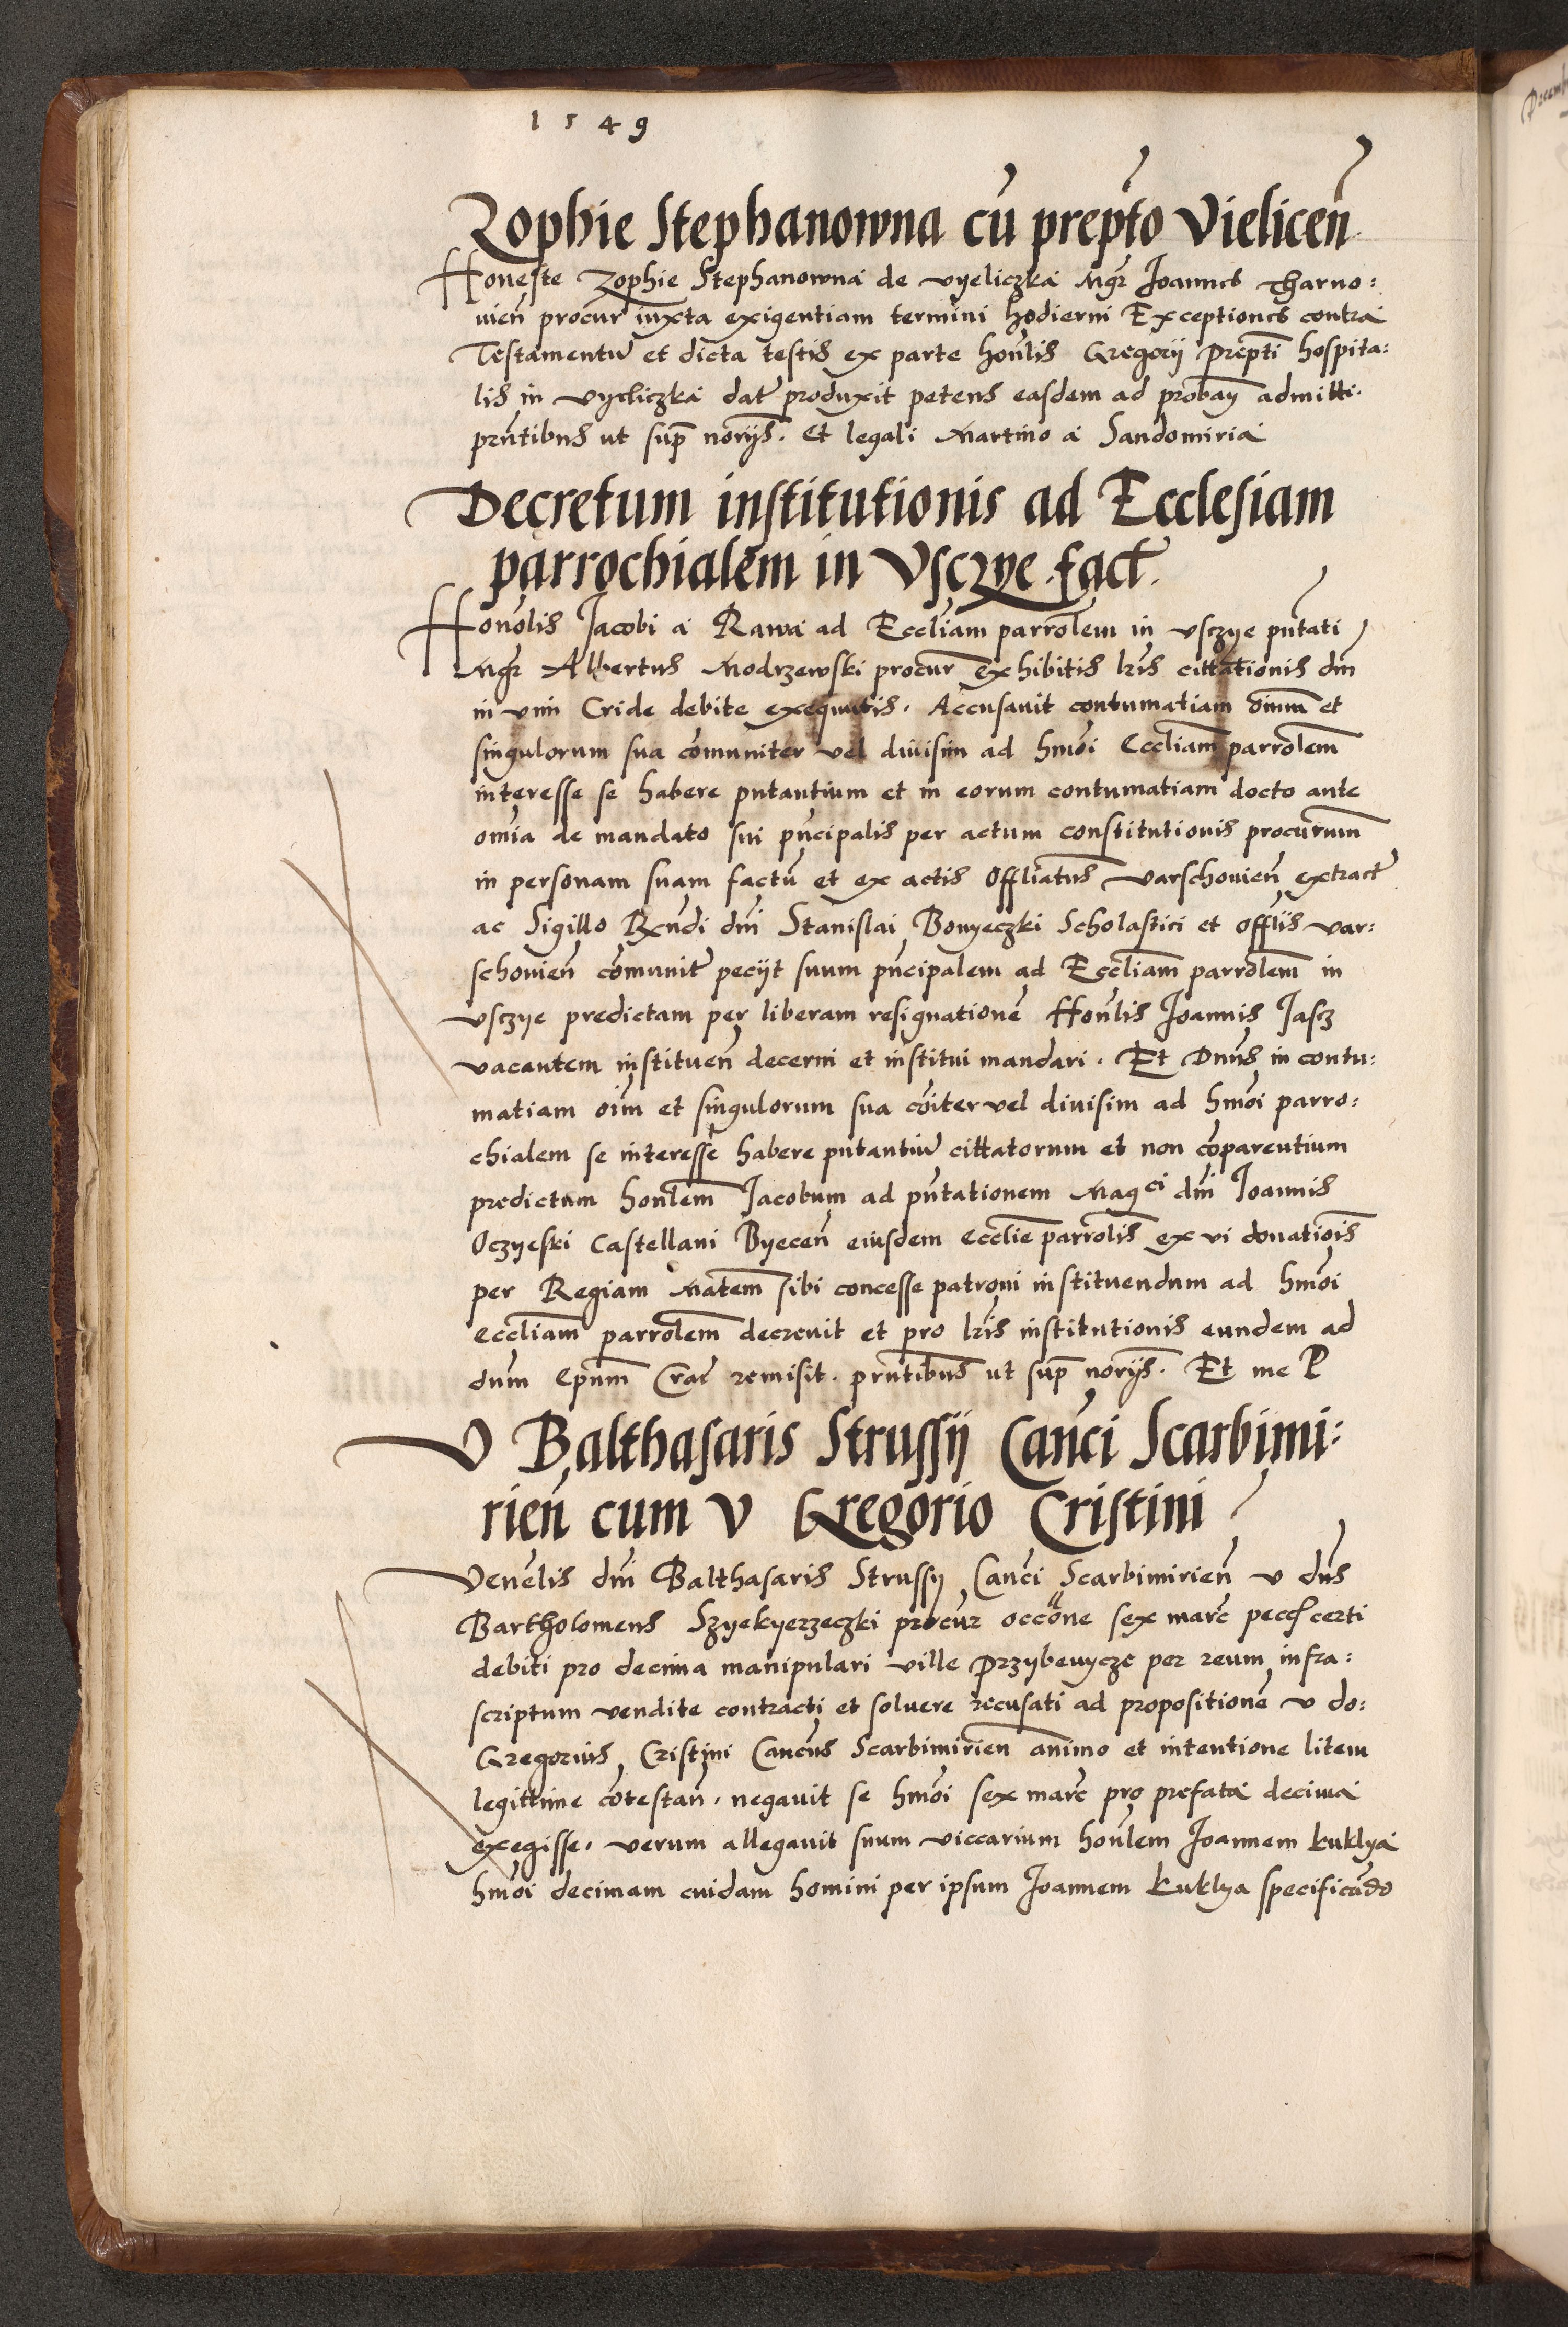 1549
Zophie Stephanowna cū prepto Vielicen̄
Honeste Zophie Stephanowna de vyeliczka Mgr̄ Joannes Tharno:
uien̄ procur̄ iuxta exigentiam termini hodierni Exceptiones contra
Testamentū et dicta testis ex parte honlis Gregorij Prepti hospita:
lis in vyeliczka dat̄ produxit petens easdem ad proban̄ admitti.
prntibus ut sup̄ norijs. Et legali Martino a Sandomiria
Decretum institutionis ad Ecclesiam
parrochialem in Vsczye fact̄.
Honolis Jacobi a Rawa ad Eccliam parrolem in vsczye pntati
Mgr̄ Albertus Modrzewski procur̄ exhibitis lris cittationis dni
in vim Cride debite exequutis. Accusauit contumatiam oīnum et
singulorum sua comuniter vel diuisim ad hmoi Eccliam parrolem
interesse se habere putantium et in eorum contumatiam docto ante
omia de mandato sui pncipalis per actum constitutionis procurnm
in personam suam factū et ex actis Offliatus varschouien̄ extract̄
ac Sigillo Rendi dni Stanislai Bonyeczki Scholastici et Offlis var:
schouien̄ comunit̄ pecijt suum pncipalem ad Eccliam parrolem in
vsczye predictam per liberam resignationē Honlis Joannis Jasz
vacantem instituen̄ decerni et institui mandari. Et Dnus in contu:
matiam oīm et singulorum sua coiter vel diuisim ad hmoi parro:
chialem se interesse habere putantiū cittatorum et non cōparentium
predictum honlem Jacobum ad pntationem Magci dni Joannis
Oczyeski Castellani Byecen̄ eiusdem Ecclie parrolis ex vi donatiōis
per Regiam Matem sibi concesse patroni instituendum ad hmoi
eccliam parrolem decreuit et pro lris institutionis eundem ad
dnm Epnm Crac̄ remisit. prntibus ut sup̄ norijs. Et me P
V Balthasaris Strussij Canci Scarbimi:
rien̄ cum V Gregorio Cristini
Venelis dni Balthasaris Strussy Canci Scarbimirien̄ v dns
Bartholomeus Szyekyerzeczki procur̄ occōne sex marc̄ pecc certi
debiti pro decima manipulari ville Przybenycze per reum infra:
scriptum vendite contracti et soluere recusati ad propositionē v do:
Gregorius Cristini Cancus Scarbimirien̄ animo et intentione litem
legittime cōtestan̄. negauit se hmoi sex marc̄ pro prefata decima
exegisse. verum allegauit suum viccarium honlem Joannem kuklya
hmoi decimam cuidam homini per ipsum Joannem kuklya specificādo